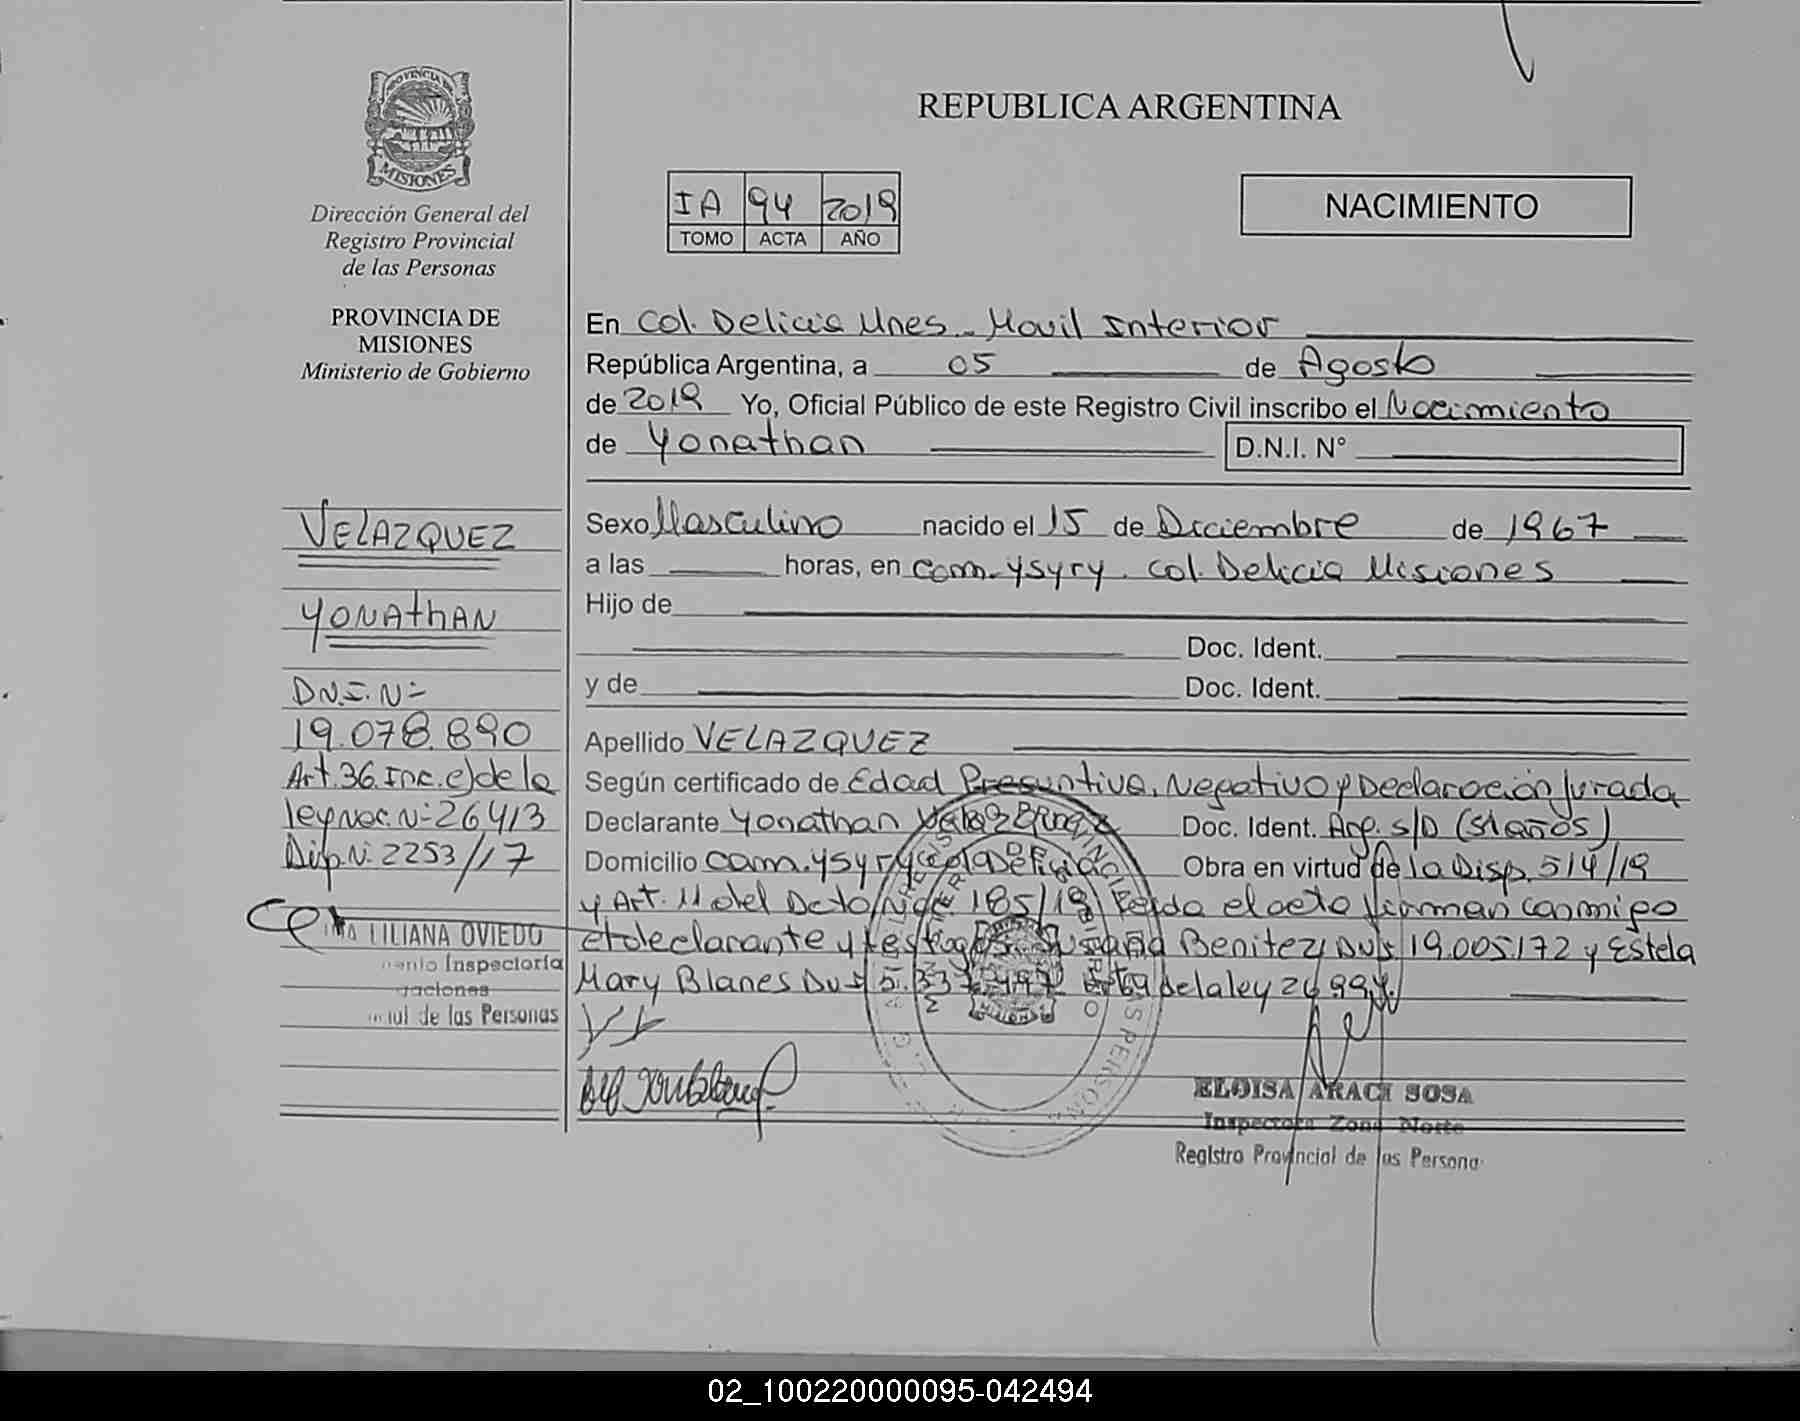 PROVINCIA DE
MISIONES
Dirección General del
Registro Provincial
de las Personas
PROVINCIA DE
MISIONES
Ministerio de Gobierno
VELAZQUEZ
YONAthAN
D.N.I. Nº
19.078.890
Art.36.Inc.e)de la
ley Nac. Nº 26413
Disp.Nº 2253/17
LILIANA OVIEDO
Inspectoría
de las Personas
REPUBLICA ARGENTINA
IA 94 2019
TOMO ACTA AÑO
NACIMIENTO
En Col. Delicia Mnes. Movil Interior
República Argentina, a 05 de Agosto
de 2019 Yo, Oficial Público de este Registro Civil inscribo el Nacimiento
de Yonathan D.N.I. N°
Sexo Masculino nacido el 15 de Diciembre de 1967
a las horas, en Com. Ysyry. Col. Delicia Misiones
Hijo de
Doc. Ident.
y de Doc. Ident.
Apellido VELAZQUEZ
Según certificado de Edad Presuntiva, Negativo y Declaración Jurada
Declarante Yonathan Velazquez Doc. Ident. Arg. S/D (51 años)
Domicilio Com. Ysyry Col. Delicia Obra en virtud de la Disp. 514/19
y Art. 11 del Dcto 185/19 Leida el acta firman conmigo
el declarante y testigos Susana Benitez DNI 19.005.172 y Estela
Mary Blanes DNI 5. de la ley 26994.
ELOISA ARACI SOSA
Inspectora Zona Norte
Registro Provincial de las Persona
02_100220000095-042494